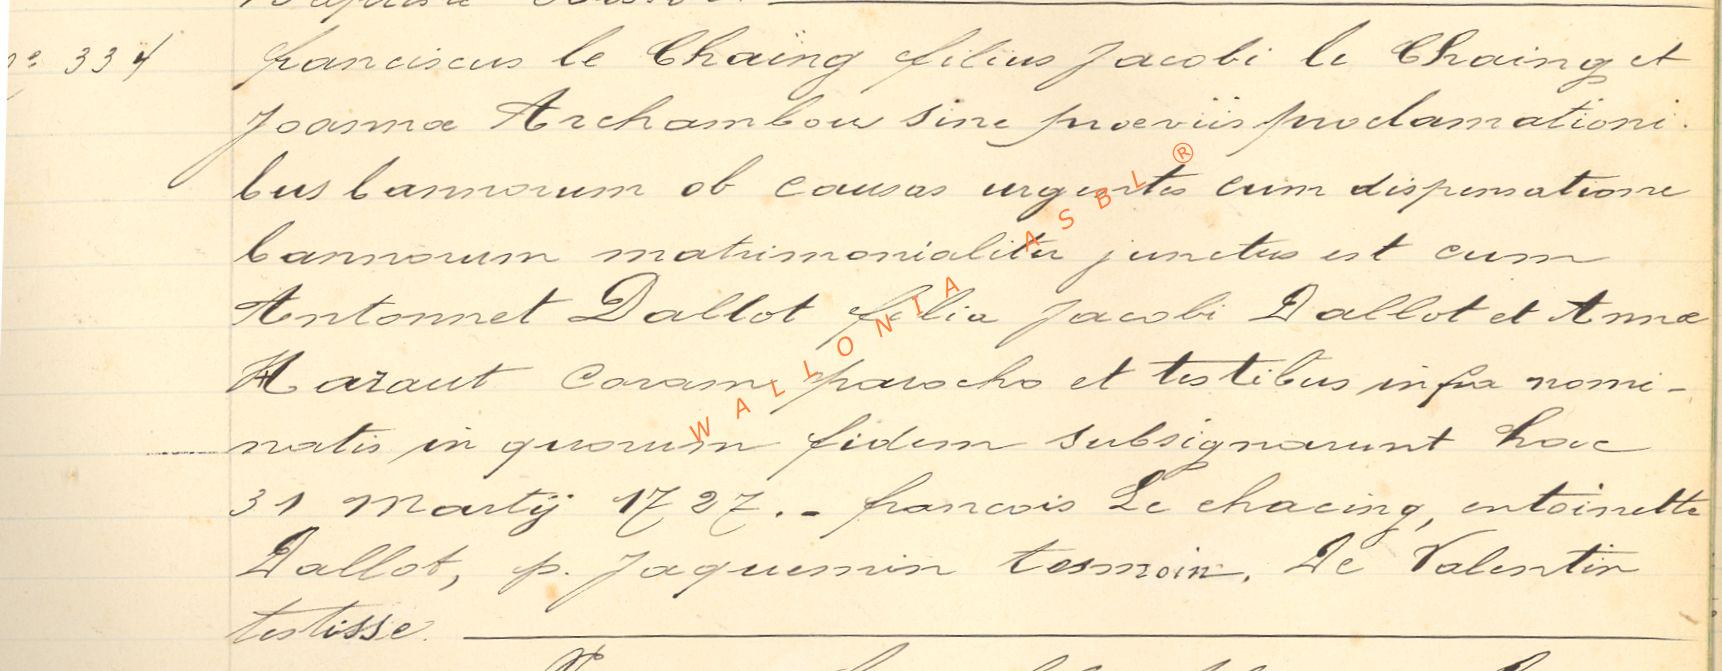 nº 334 franciscus le Chaïng filius Jacobi le Chaing et
Joannæ Archambou sine prœviis proclamationi-
bus bannorum ob causas urgentes cum dispensatione
bannorum matrimonialiter junctus est cum
Antonnet Dallot filia Jacobi Dallot et Annæ
Haraut Coram parocho et testibus infra nomi-
natis in quorum fidem subsignarunt hac
31 Martij 1727. - francois Le chacing, entoinette
Dallot, p. Jaquemin tesmoin. De Valentin
testisse.
WALLONIA ASBL ®